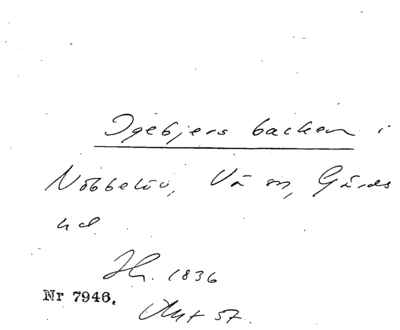 Igebjers backen i
Nöbbelöv, Vä sn, Gärds
hd
Hr. 1836
Nr 7946.
57.